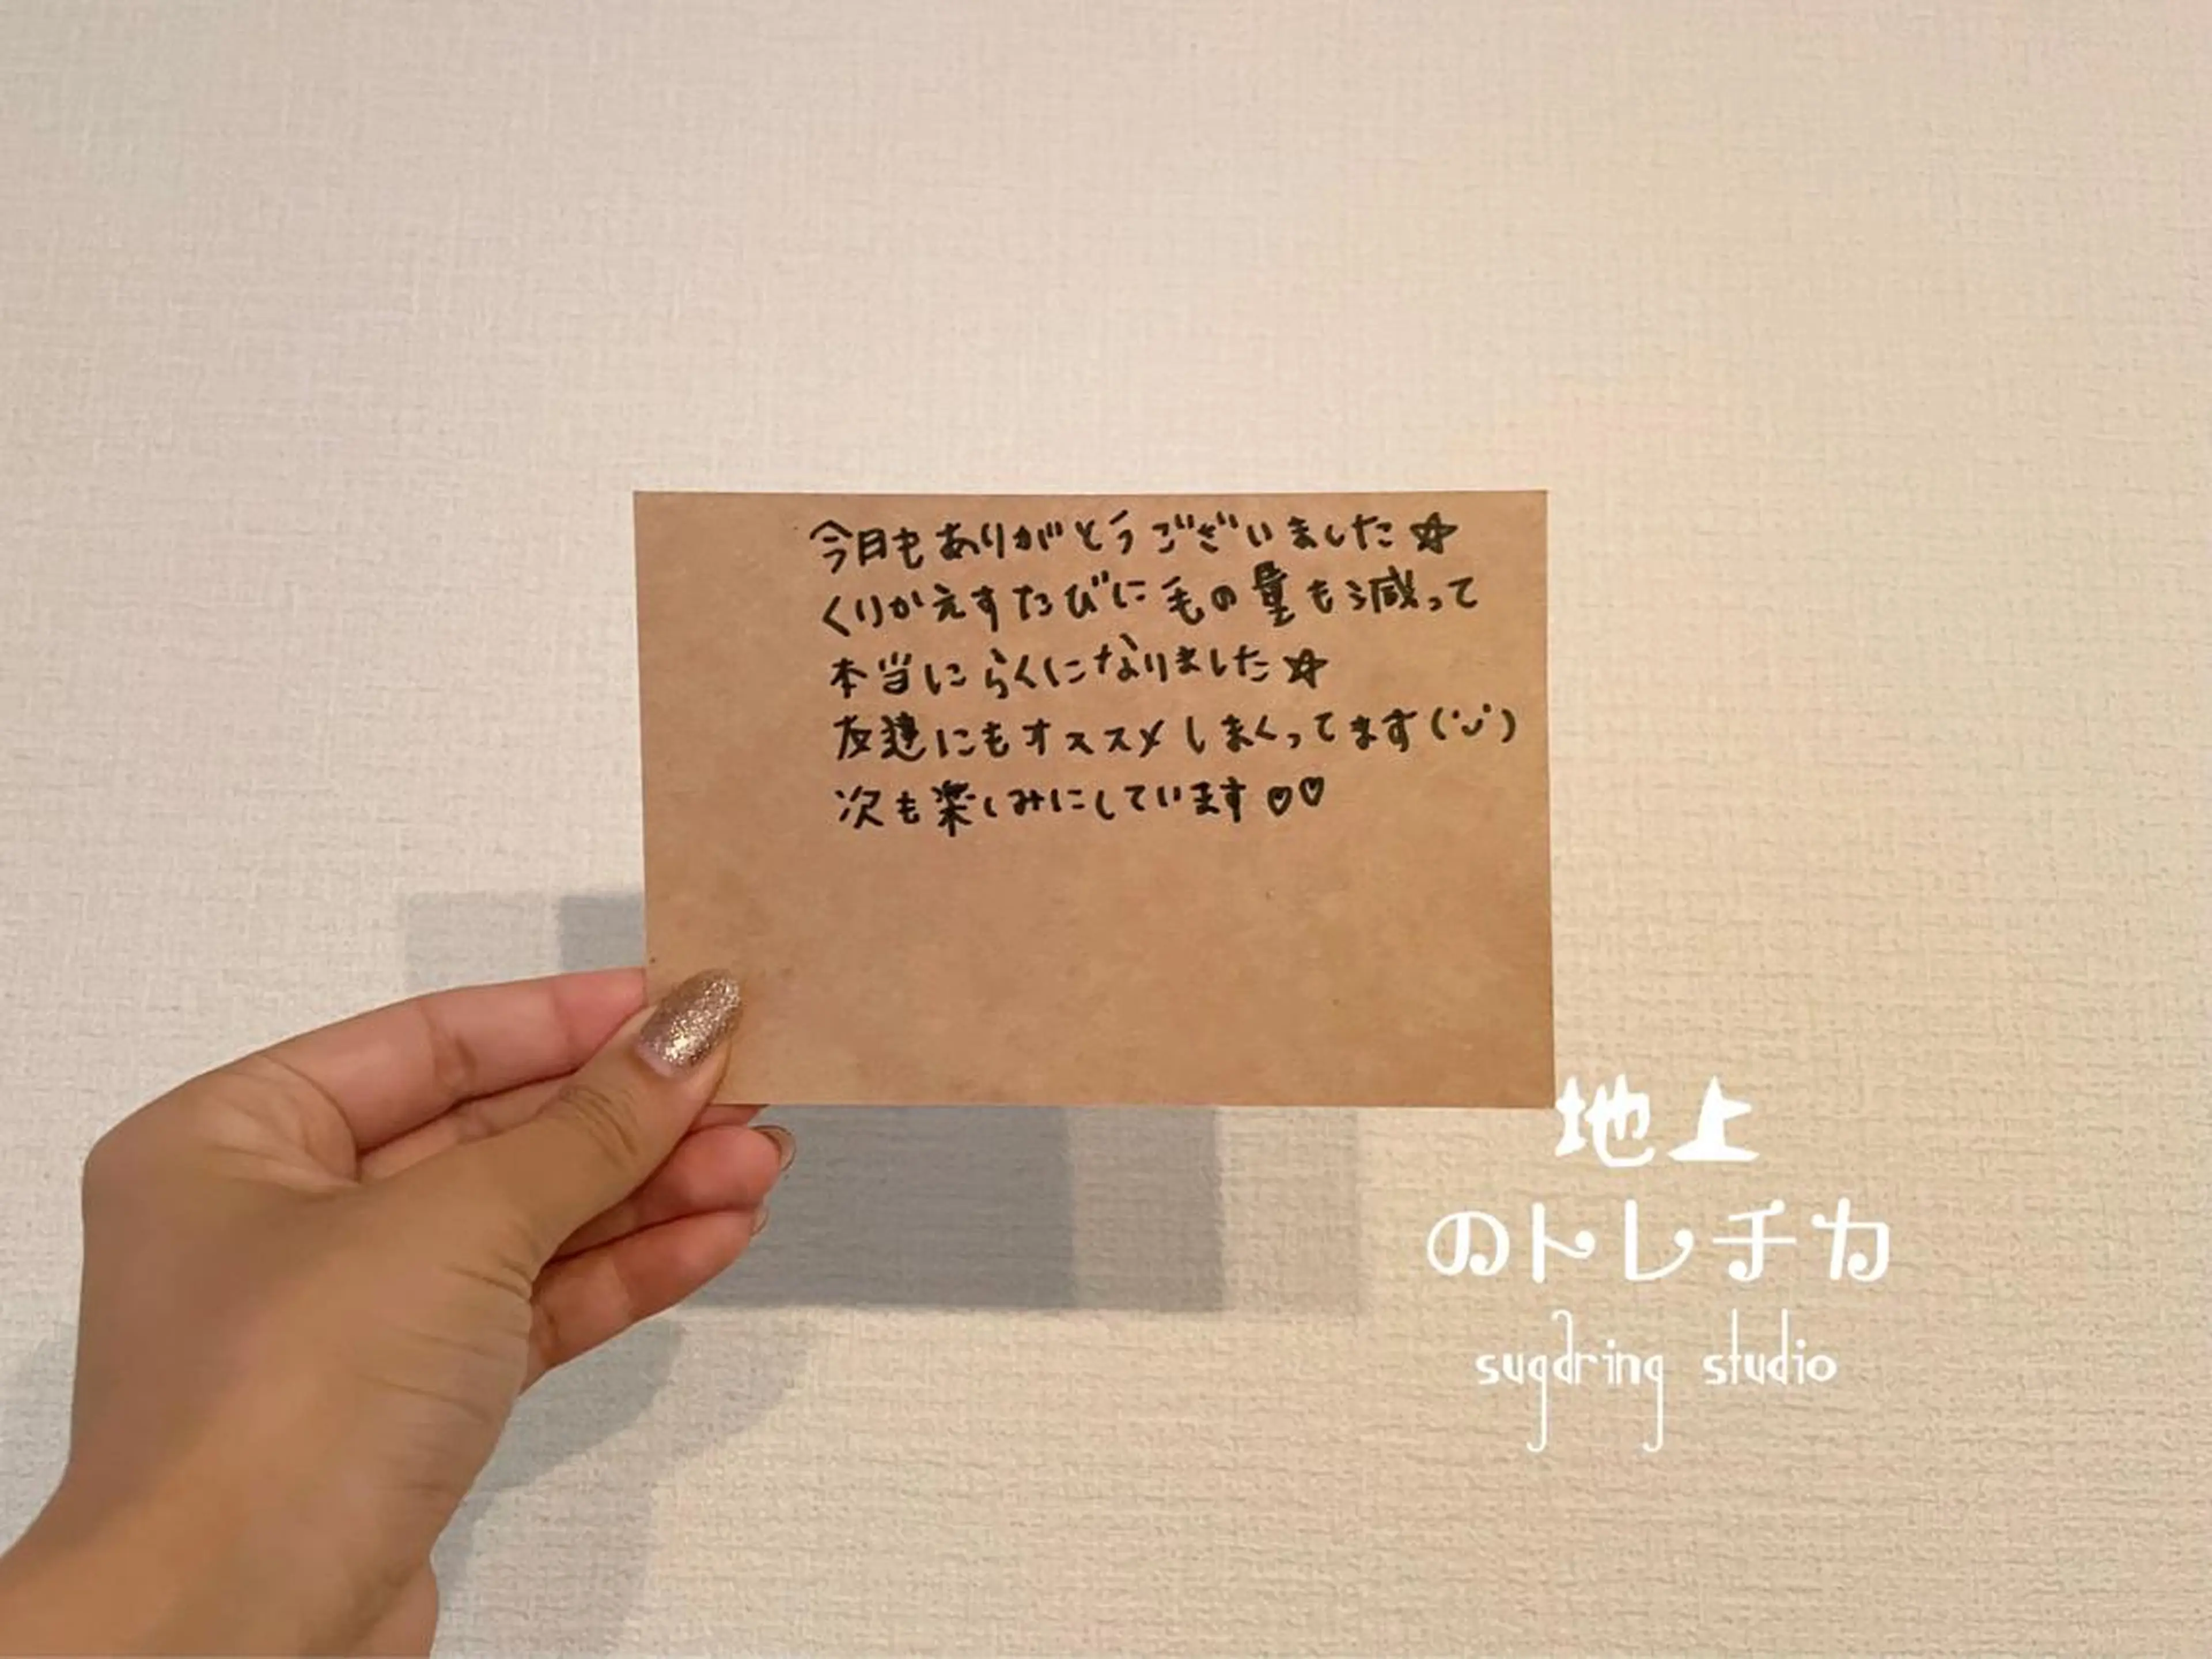 今日もありがとうございました☆
くりかえすたびに毛の量も減って
本当にらくになりました☆
友達にもオススメしまくってます(˙ᴗ˙)
次も楽しみにしています♡♡
地上
のトレチカ
sugaring studio